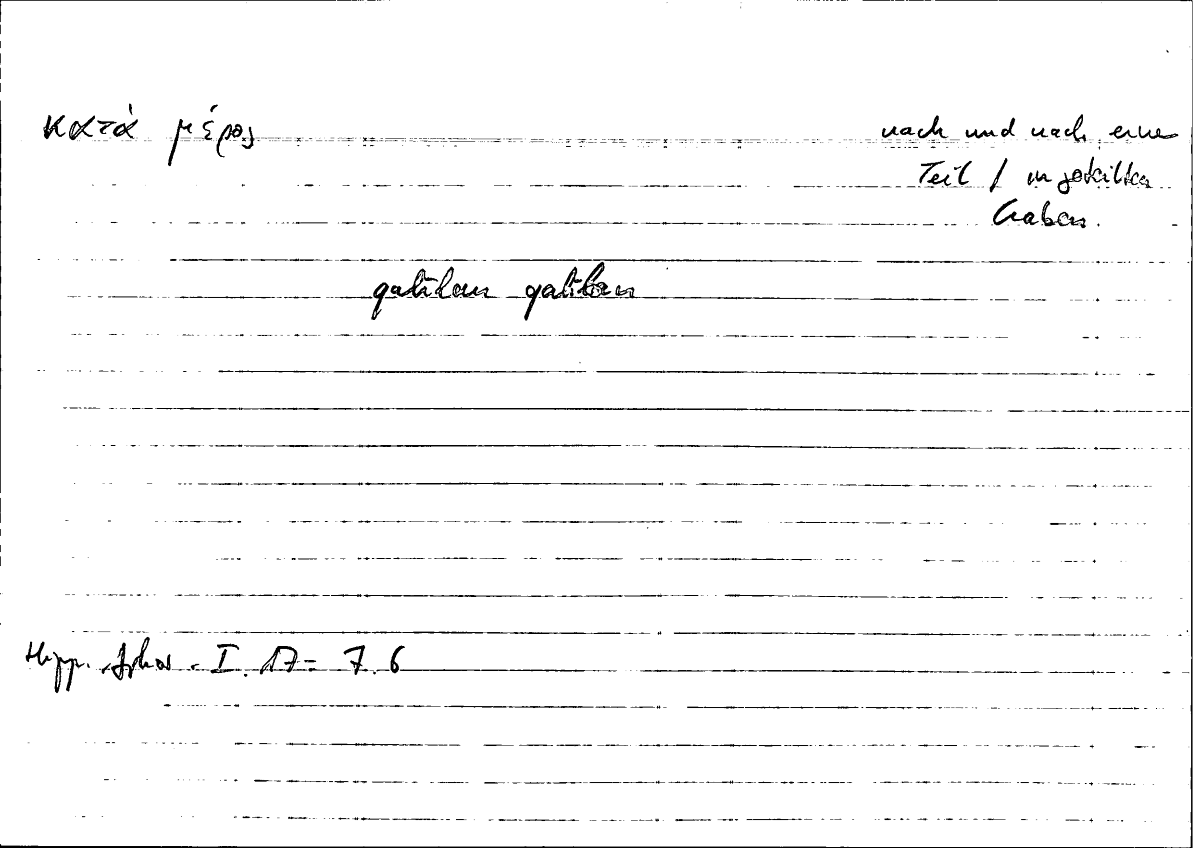 κατὰ μέρος
nach und nach eine
Teil / in geteilten
Gaben.
qalīlan qalīlan
Hipp. Aphor. I. 17 = 7. 6